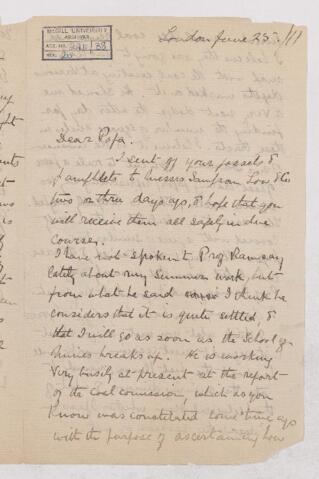 McGILL UNIVERSITY
ARCHIVES
ACC. NO.
REF.
London June 25
Dear Papa.
I sent off your gazette &
pamphlets to Messrs Sampson Low & Co
two or three days ago, & hope that you
will receive them all safely in due
course.
I have not spoken to Prof Ramsay
lately about my Summer work, but
from what he said I think he
considers that it is quite settled &
that I will go as soon as the School of
Mines breaks up. He is working
very busily at present at the report
of the Coal comission, which as you
know was constituted some time ago
with the purpose of ascertaining how